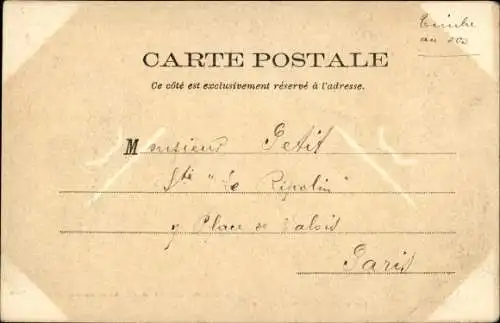 Timbre
au dos
CARTE POSTALE
Ce côté est exclusivement réservé à l'adresse.
Monsieur Petit
Sté "Le Ripolin"
Place de Valois
Paris